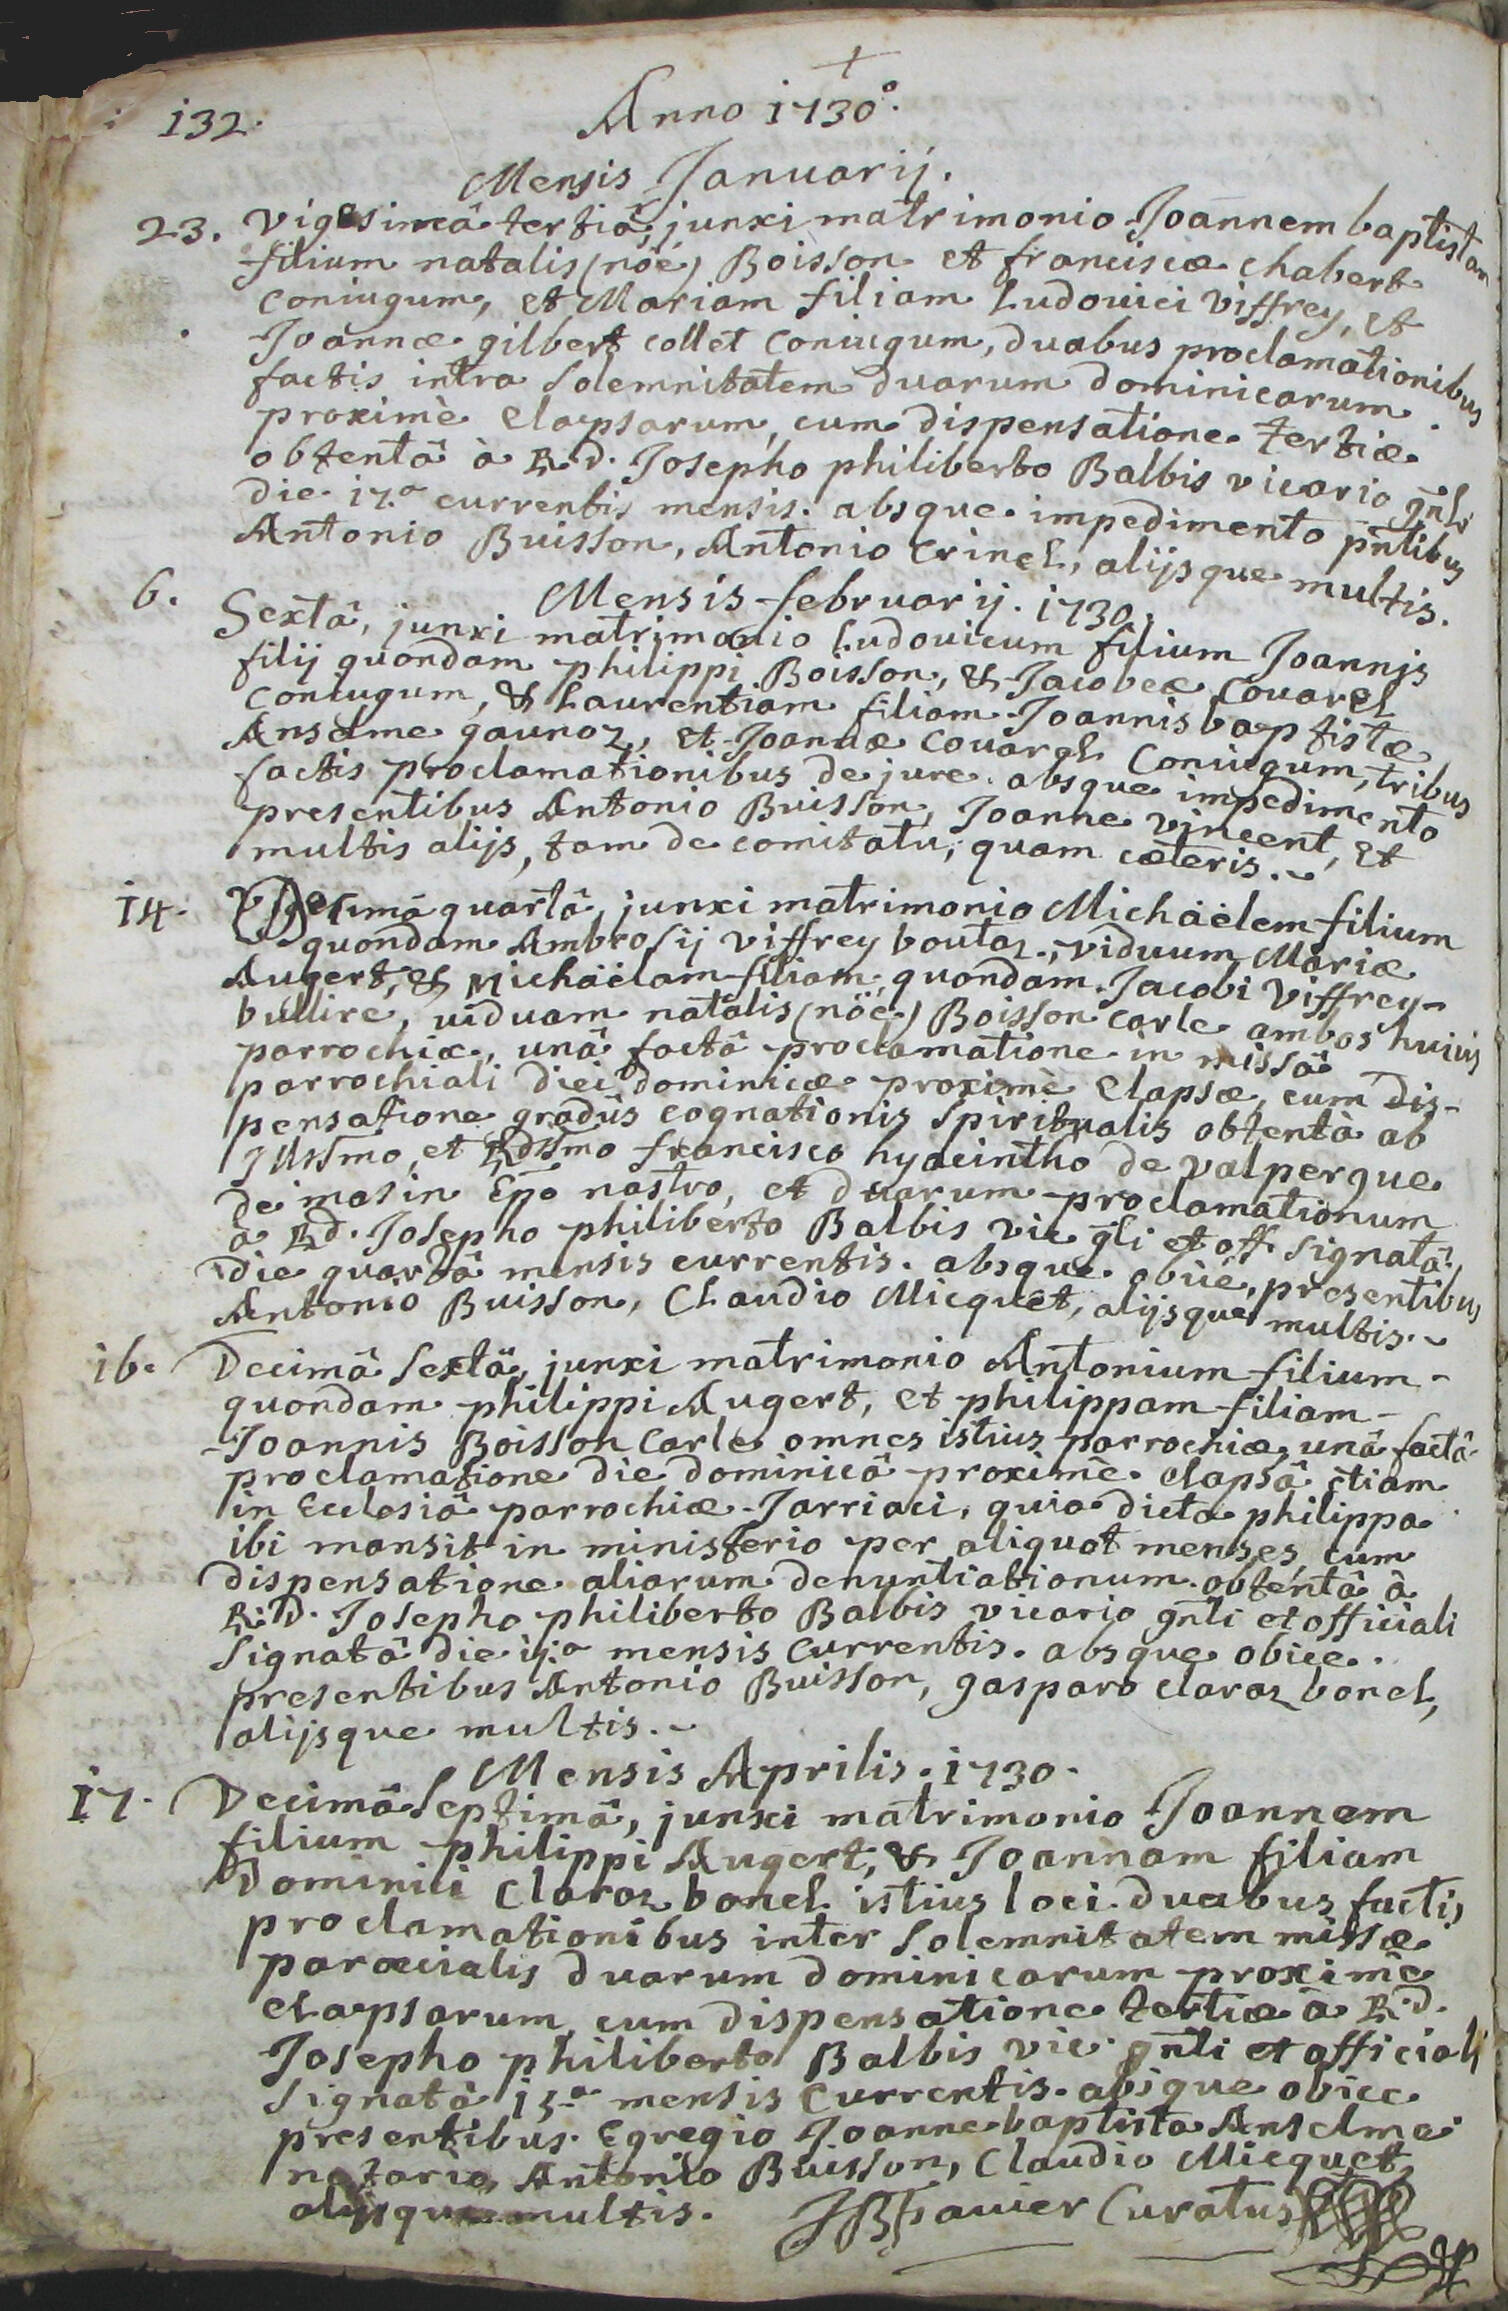 132.
Anno 1730°.
Mensis Januarij.
23. vigesimâ tertiâ, junxi matrimonio Joannem baptistam
filium natalis (nöé) Boisson et franciscæ chabert
coniugum, et Mariam filiam Ludovici viffrey, et
Joannæ gilbert collet coniugum, duabus proclamationibus
factis intra solemnitatem duarum dominicarum
proximè elapsarum, cum dispensatione tertiæ
obtentâ à R.d. Josepho philiberto Balbis vicario gñli
die 17.a currentis mensis. absque impedimento pñtibus
Antonio Buisson, Antonio Crinel, alijsque multis.
Mensis februarij. 1730.
6. Sextâ, junxi matrimonio Ludovicum filium Joannis
filij quondam philippi Boisson, & Jacobeæ Couarel
coniugum, & Laurentiam filiam Joannis baptistæ
Anselme gaunoz, et Joannæ Couarel Coniugum, tribus
factis proclamationibus de jure absque impedimento
presentibus Antonio Buisson, Joanne vincent, et
multis alijs, tam de comitatu, quam cæteris.
14. quartâ, junxi matrimonio Michäëlem filium
quondam Ambrosij viffrey boutaz, viduum Mariæ
Augert, & Michäëlam filiam quondam Jacobi viffrey-
bullire, viduam natalis (nöé) Boisson carle ambos huius
parrochiæ, unâ factâ proclamatione in missâ
parrochiali diei dominicæ proximè elapsæ, cum dis-
pensatione gradûs cognationis spiritualis obtentâ ab
Illssmo et Rdssmo francisco hyacintho de valpergue
de masin Epõ nostro, et duarum proclamationum
a Rd. Josepho philiberto Balbis vic gli et off. signatâ,
die quartâ mensis currentis. absque obice, presentibus
Antonio Buisson, Claudio Micquet, alijsque multis.
16. Decimâ sextâ, junxi matrimonio Antonium filium
quondam philippi Augert, et philippam filiam
Joannis Boisson Carle omnes istius parrochiæ, unâ factâ
proclamatione die dominicâ proximè elapsâ etiam
in Ecclesiâ parrochiæ Jarriaci, quia dicta philippa
ibi mansit in ministerio per aliquot menses, cum
dispensatione aliarum denuntiationum obtentâ à
R.D. Josepho philiberto Balbis vicario gñli et officiali
signatâ die mensis Currentis. absque obice.
presentibus Antonio Buisson, gasparo claraz bonel,
alijsque multis.
Mensis Aprilis. 1730.
17. Decimâ septimâ, junxi matrimonio Joannem
filium philippi Augert, & Joannam filiam
Dominici Claraz bonel istius loci. duabus factis
proclamationibus inter solemnitatem missæ
paroecialis duarum dominicarum proximè
elapsarum, cum dispensatione tertiæ à R.d.
Josepho philiberto Balbis vic. gñli et officiali
signatâ 15.a mensis Currentis. absque obice
presentibus Egregio Joanne baptista Anselme
notario, Antonio Buisson, Claudio Micquet,
alijsque multis. Curatus